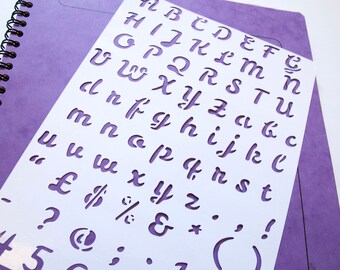 A B C D E F G
H I J K L M N
O P Q R S T U
V W X Y Z a b c
d e f g h i j k l
m n o p q r s t
u v w x y z
“ £ $ % & * ; !
- ? @ : , ( )
4 5 6